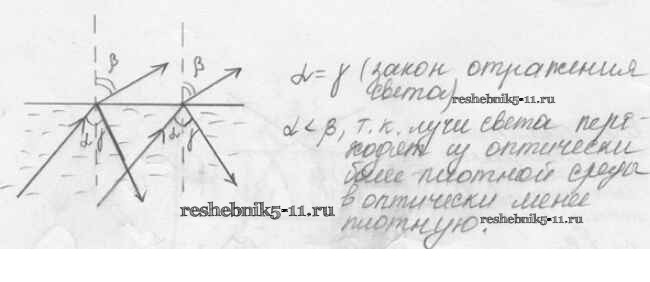 β β
α γ α γ
α = γ (закон отражения
света)
reshebnik5-11.ru
α < β, т.к. лучи света пере-
ходят из оптически
более плотной среды
в оптически менее
плотную.
reshebnik5-11.ru
reshebnik5-11.ru